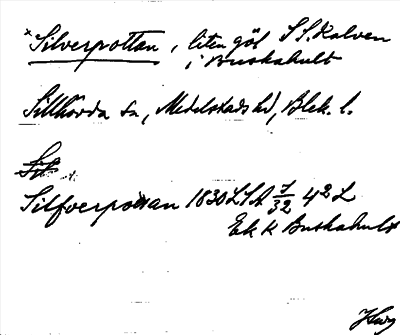 *Silverpottan, liten göl S S. Kalven
i Buskahult
Sillhövda sn, Medelstads hd, Blek. l.
Sil
Silfverpottan 1830 LSA 7/32 42 L
Ek K Buskahult